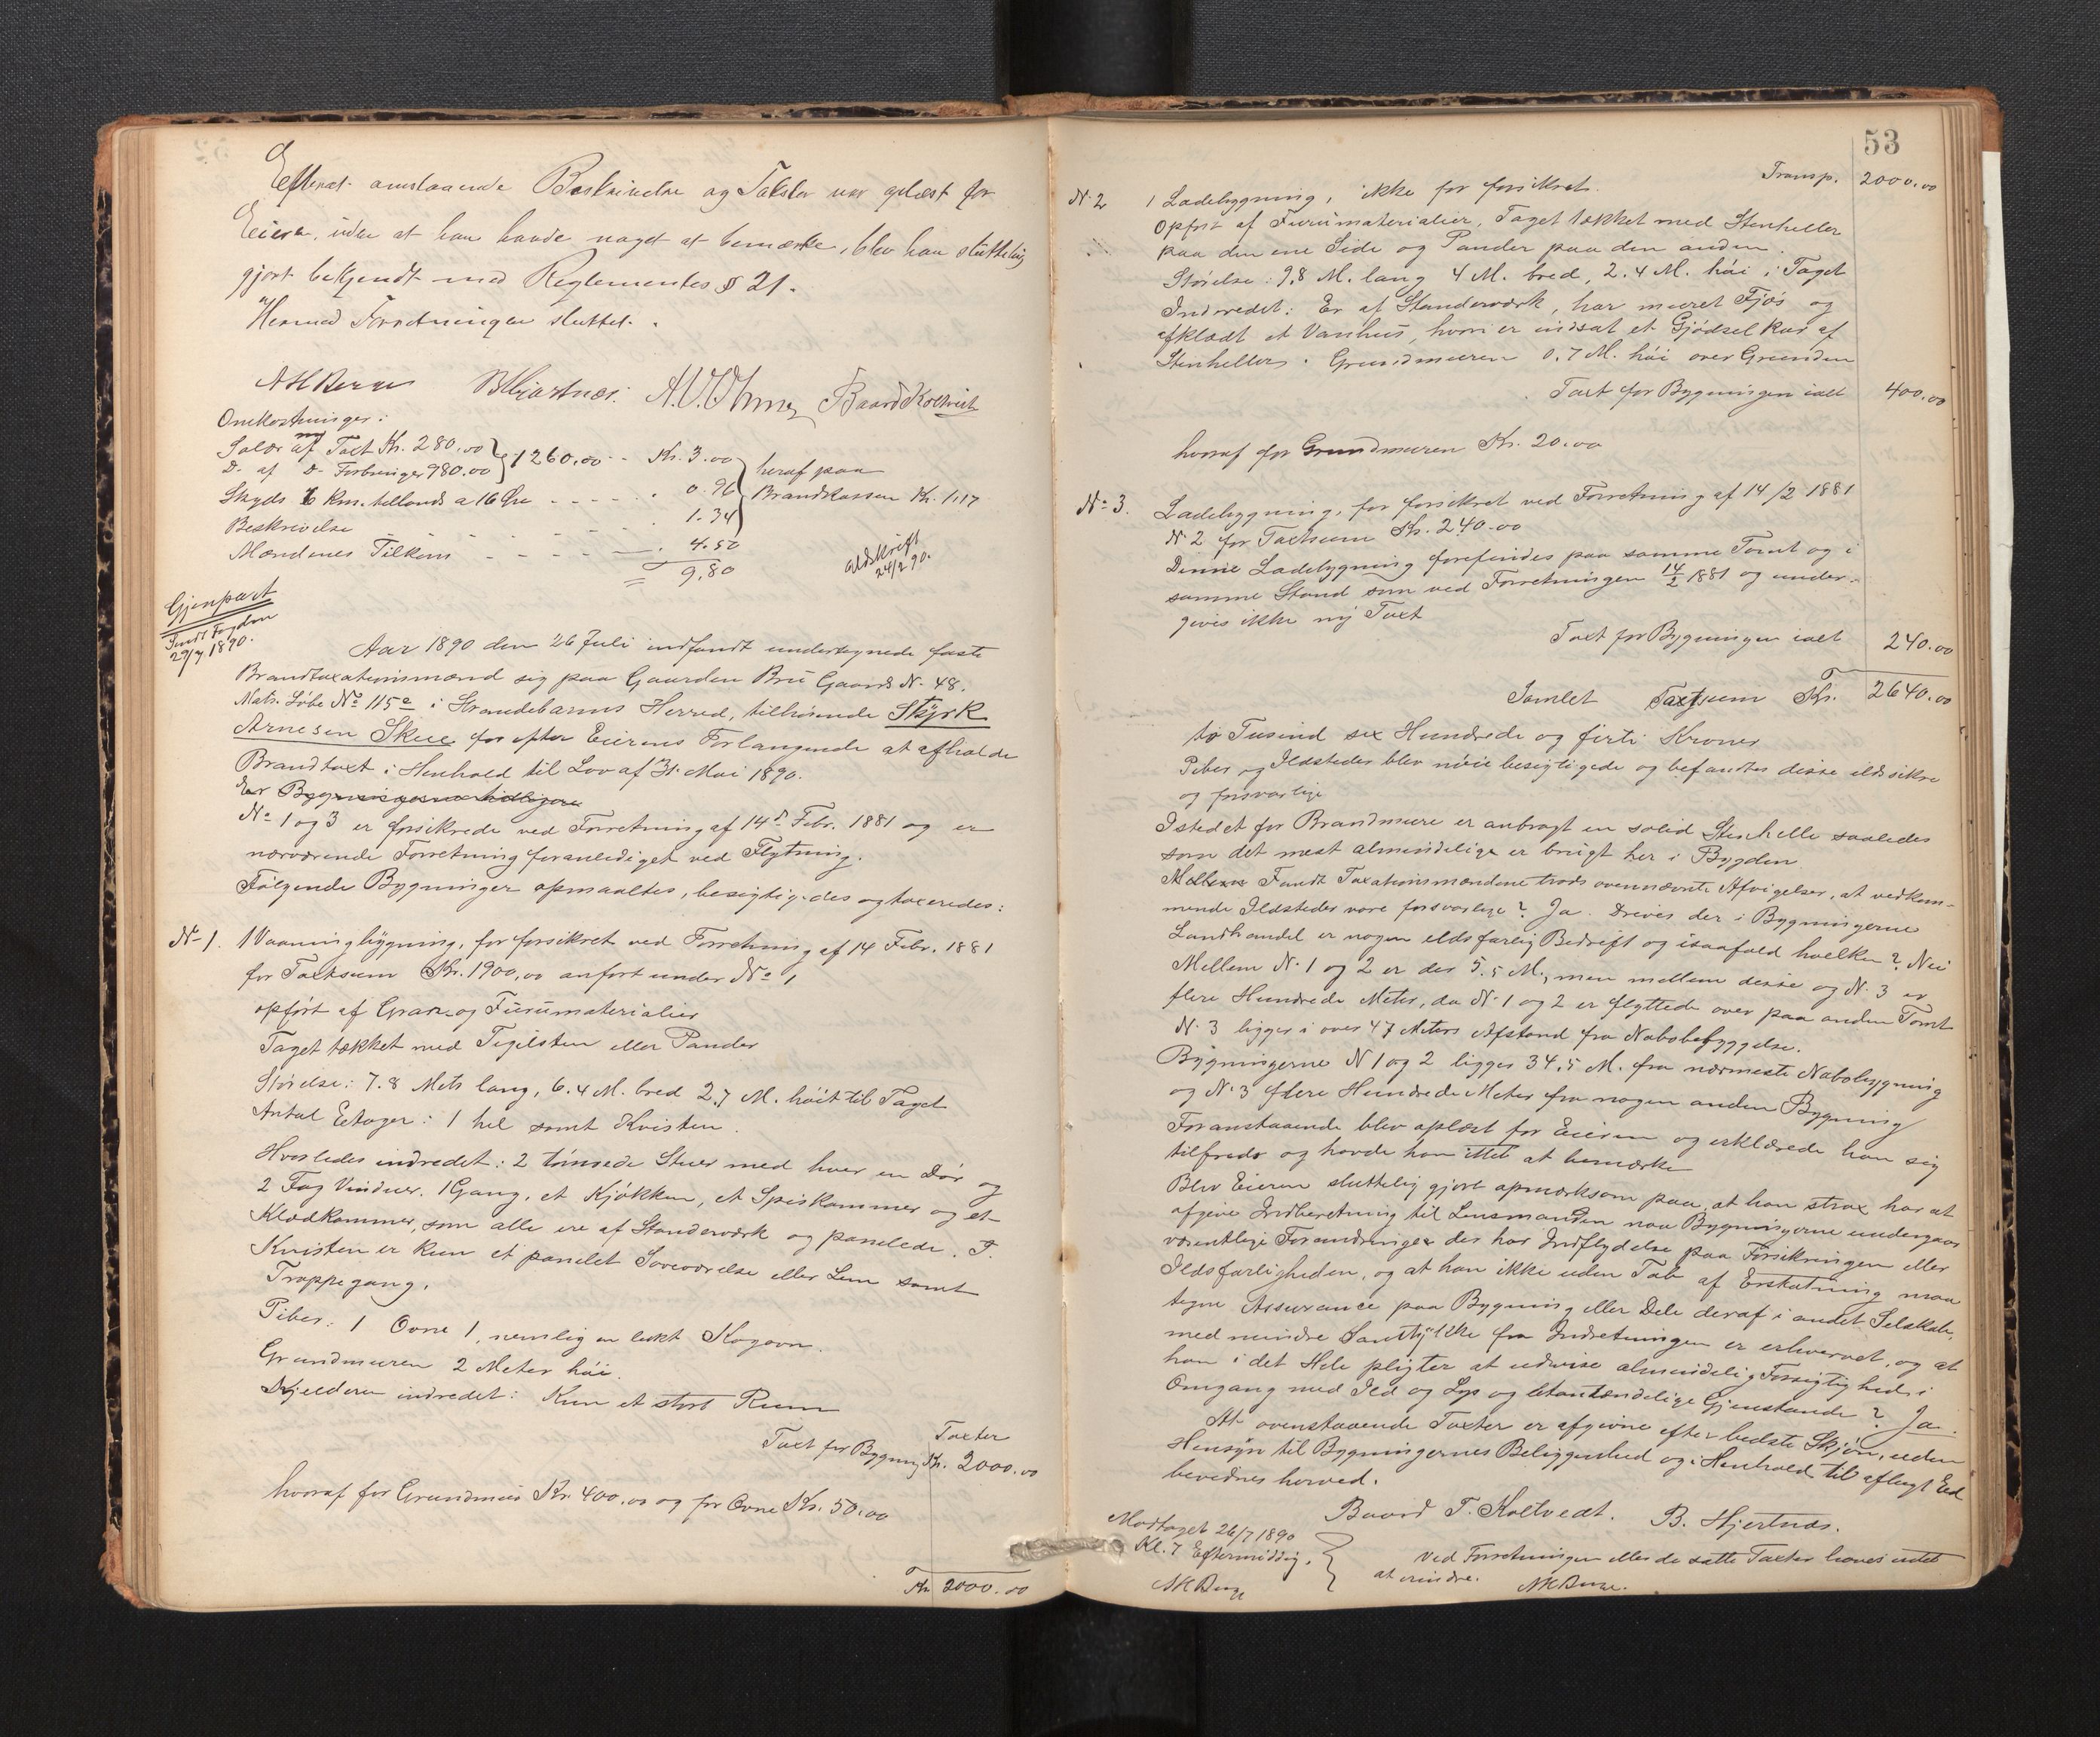 Efterat anstaaende Beskrivelse og Takster var oplæst for
Eieren, uden at han havde noget at bemærke, blev han sluttelig
gjort bekjendt med Reglementets § 21.
Hermed Forretningen sluttet.
B Hjartnæs. Baard Koltveit
Omkostninger:
Salær af Taxt Kr. 280,00 } 1260,00 - Kr. 3.00
D. af D. Forbringer 980.00
Skyds 6 Km. tillands a 16 Øre - - - - 0.96
Beskrivelse - - - 1.34
heraf paa
Brandkassen Kr. 1,17
Mændenes Tilkom - - - 4.50
9,80
Udskrift
24/2 90.
Gjenpart
Sendt Fogden
29/7 1890.
Aar 1890 den 26 Juli indfandt undertegnede faste
Brandtaxationsmænd sig paa Gaarden Bru Gaards N. 48.
Matr. Løbe No 115a i Strandebarms Herred, tilhørende Styrk
Arnesen Skue for efter Eierens Forlangende at afholde
Brandtaxt i Henhold til Lov af 31. Mai 1890.
Er Bygningerne tidligere
No 1 og 3 er forsikrede ved Forretning af 14de Febr. 1881 og er
nærværende Forretning foranlediget ved Flytning.
Følgende Bygninger opmaaltes, besigtigedes og taxeredes:
No 1. 1 Vaaningbygning, før forsikret ved Forretning af 14 Febr. 1881
for Taxtsum Kr. 1900,00 anført under No 1
opført af Gran og Furumaterialier
Taget tækket med Tegelsten eller Pander
Størelse: 7.8 Mets lang, 6.4 M. bred 2.7 M. høit til Taget
Antal Etager: 1 hel samt Kvisten.
Hvorledes indredet: 2 tømrede Stuer med hver en Dør og
2 Fag Vinduer. 1 Gang, et Kjøkken, et Spiskammer og et
Klædkammer, som alle ere af Standeværk og panelede. I
Kvisten er kun et panelet Soveværelse eller Lem samt
Trappegang.
Piber: 1 Ovne 1, nemlig en lukt Kogovn.
Grundmuren 2 Meter høi.
Kjelderen indredet: Kun et stort Rum
Taxter
Taxt for Bygning Kr. 2000.00
hvoraf for Grundmur Kr. 400.00 og for Ovne Kr. 50.00
Kr 2000.00
53
Transp. 2000.00
N. 2 1 Ladebygning, ikke før forsikret.
Opført af Furumaterialier, Taget tækket med Stenheller
paa den ene Side og Pander paa den anden.
Størelse: 9,8 M. lang 4 M. bred, 2.4 M. høi i Taget
Indredet: Er af Standeværk, har muret Fjøs og
afklædt et Vanhus, hvori er indsat et Gjødselkar af
Stenheller. Grundmuren 0.7 M. høi over Grunden
Taxt for Bygningen ialt 400.00
hvoraf for Grundmuren Kr. 20.00
No 3. Ladebygning, før forsikret ved Forretning af 14/2 1881
N. 2 for Taxtsum Kr. 240.00
Denne Ladebygning forefindes paa samme Tomt og i
samme Stand som ved Forretningen 14/2 1881 og under-
gives ikke ny Taxt
Taxt for Bygningen ialt 240.00
Samlet Taxtsum Kr. 2640.00
to Tusind sex Hundrede og firti Kroner
Piber og Ildsteder blev nøie besigtigede og befandtes disse ildssikre
og forsvarlige
Istedet for Brandmure er anbragt en solid Stenhelle saaledes
som det mest almindelige er brugt her i Bygden
Mellem Fandt Taxationsmændene trods ovennævnte Afvigelser, at vedkom-
mende Ildsteder vare forsvarlige? Ja. Drives der i Bygningerne
Landhandel er nogen ildsfarlig Bedrift og isaafald hvilken? Nei
Mellem N. 1 og 2 er der 5.5 M., men mellem disse og N. 3 er
flere Hundrede Meter, da N. 1 og 2 er flyttede over paa anden Tomt
N. 3 ligger i over 47 Meters Afstand fra Nabobebyggelse.
Bygningerne N 1 og 2 ligger 34,5 M. fra nærmeste Nabobygning
og N. 3 flere Hundrede Meter fra nogen anden Bygning
Foranstaaende blev oplæst for Eieren og erklærede han sig
tilfreds og havde han intet at bemærke
Blev Eieren sluttelig gjort opmærksom paa, at han strax har at
afgive Indberetning til Lensmanden naar Bygningerne undergaar
væsentlige Forandringer der har Indflydelse paa Forsikringen eller
Ildsfarligheden, og at han ikke uden Tab af Erstatning maa
tegne Assurance paa Bygning eller Dele deraf i andet Selskab,
med mindre Samtykke fra Indretningen er erhvervet, og at
han i det Hele pligter at udvise almindelig Forsigtighed i
Omgang med Ild og Lys og letantændelige Gjenstande? Ja.
At ovenstaaende Taxter er afgivne efter bedste Skjøn, uden
Hensyn til Bygningernes Beliggenhed og i Henhold til aflagt Ed
bevidnes herved.
Baard T. Koltvedt. B. Hjertnæs.
Modtaget 26/7 1890
Kl. 7 Eftermiddag.
Ved Forretningen eller de satte Taxter haves intet
at erindre.